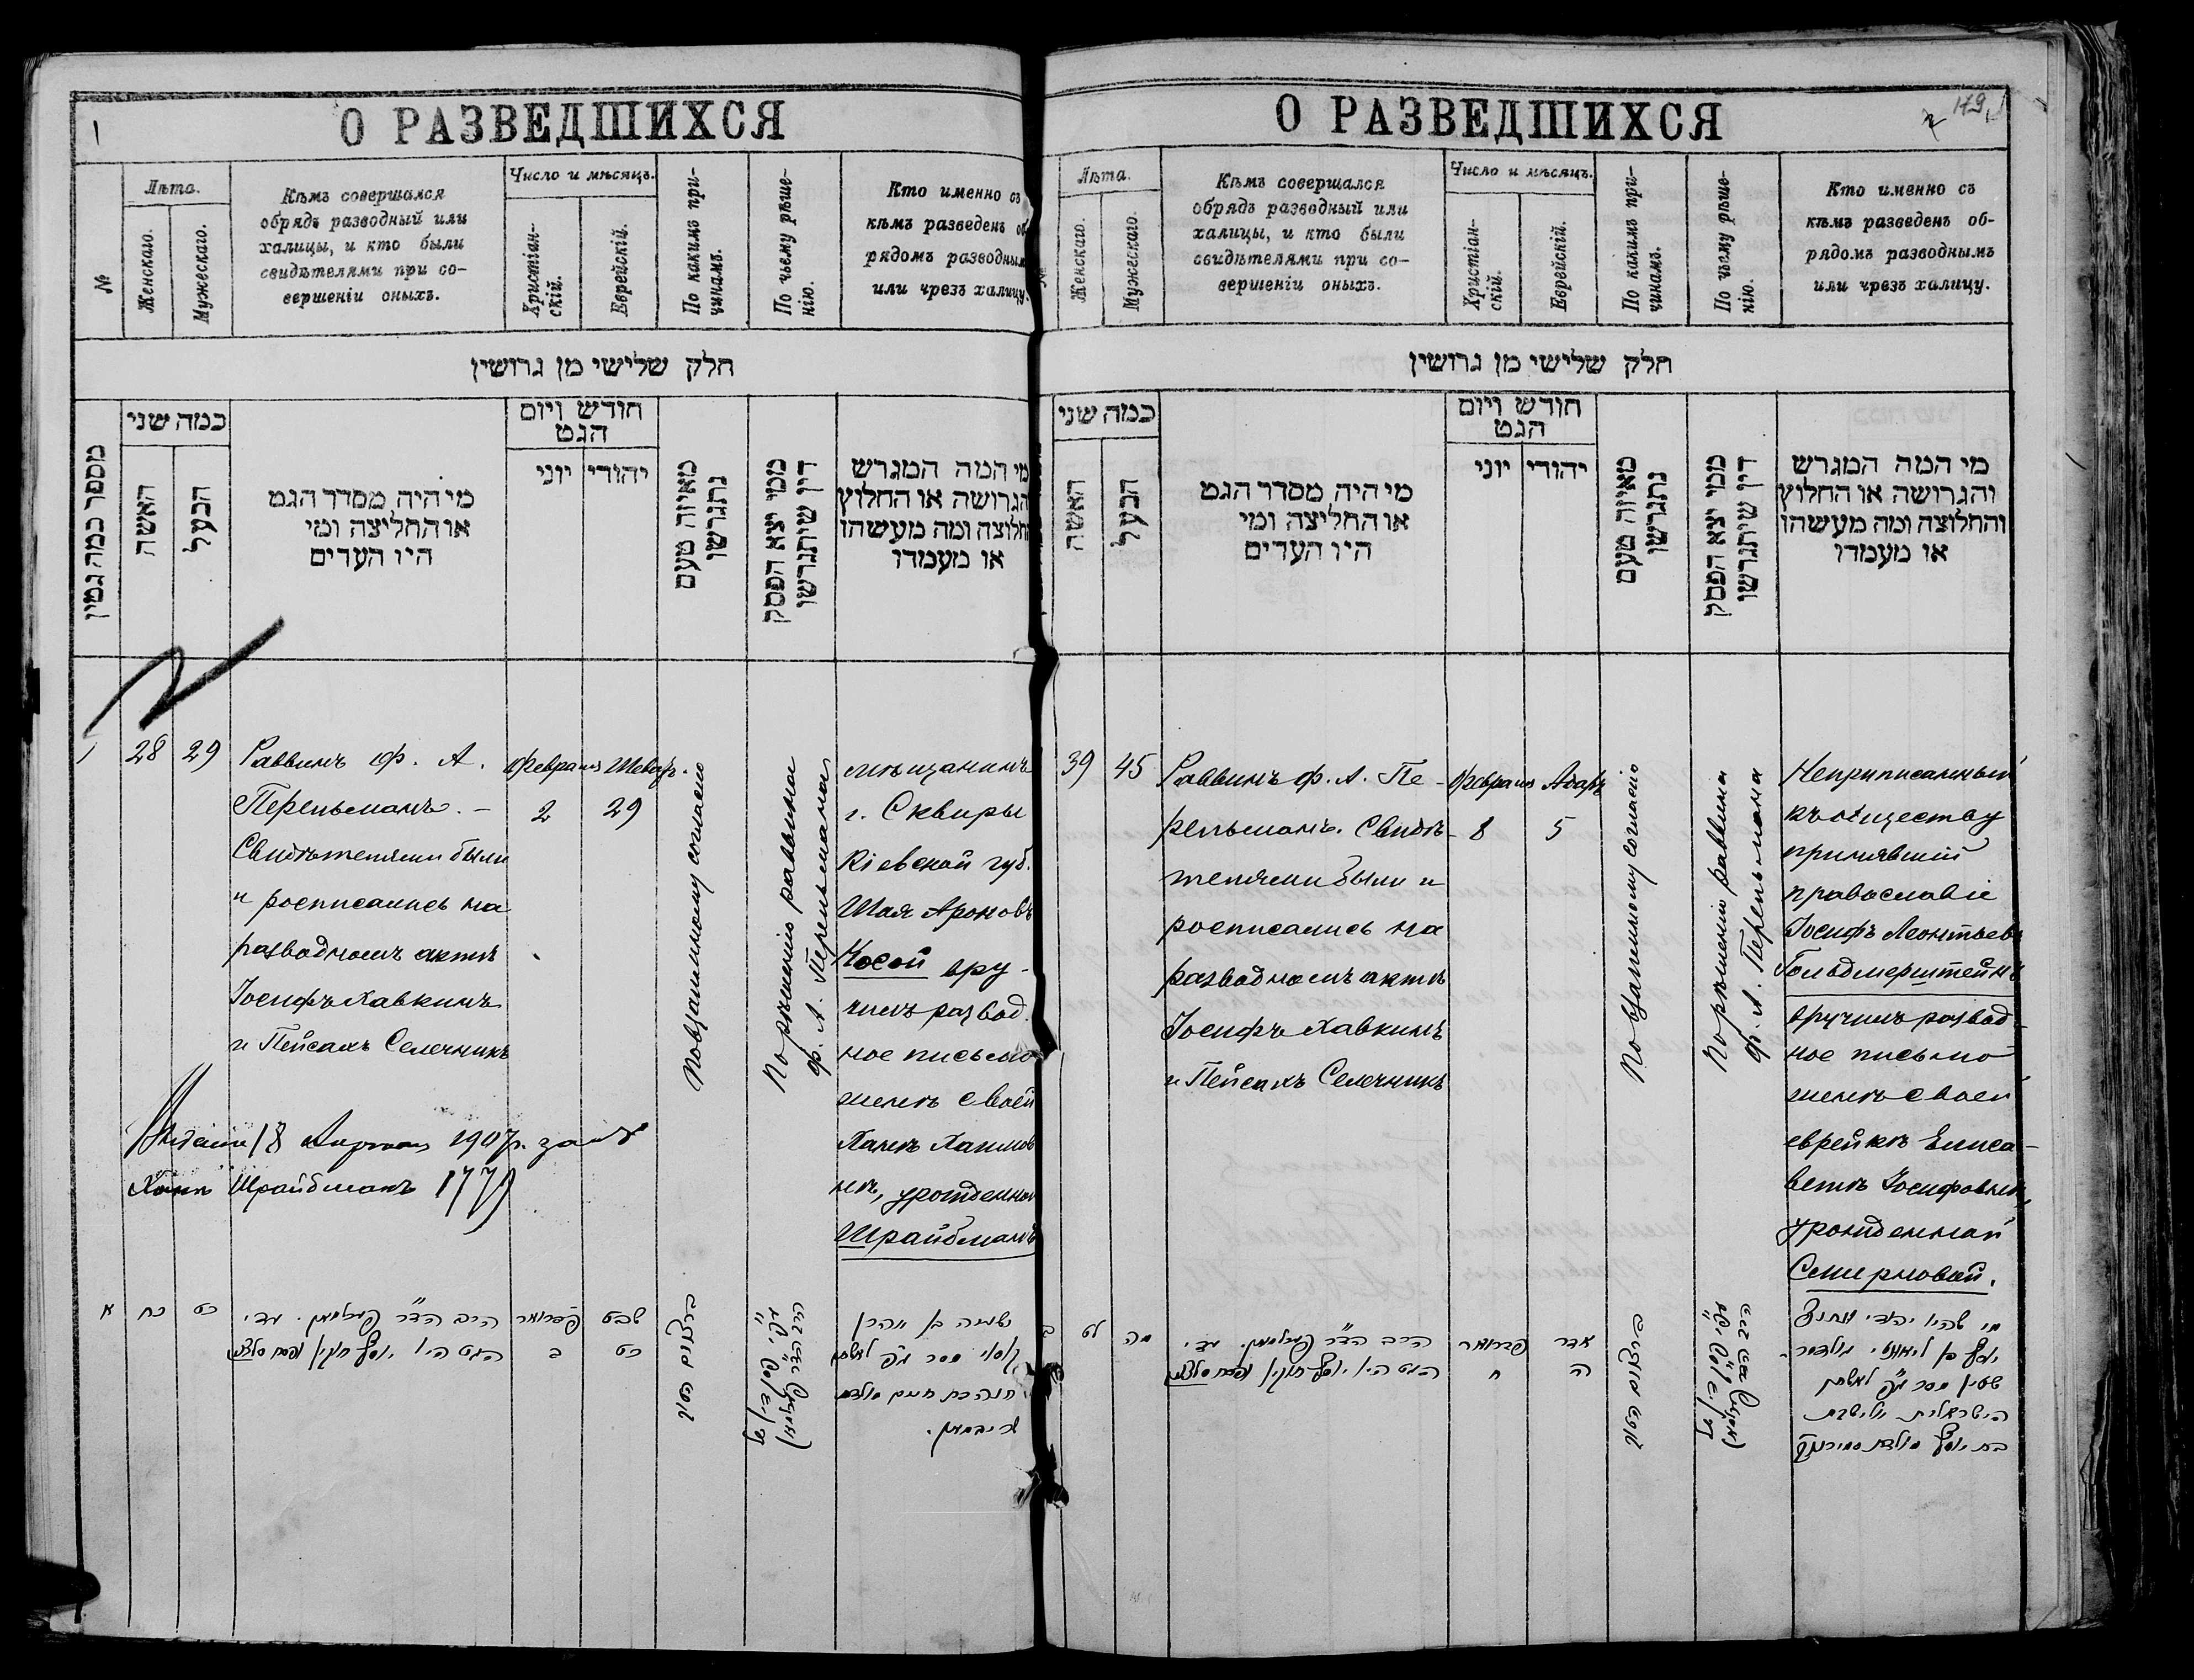 1
О РАЗВЕДШИХСЯ
№
Лѣта.
Женскаго.
Мужескаго.
Кѣмъ совершался
обрядъ разводный или
халицы, и кто были
свидѣтелями при со-
вершеніи оныхъ.
Число и мѣсяцъ.
Христіан-
скій.
Еврейскій.
По какимъ при-
чинамъ.
По чьему рѣше-
нію.
Кто именно съ
кѣмъ разведенъ об
рядомъ разводным
или чрезъ халицу.
חלק שלישי מן גרושין
מספר כמה גמין
כמה שני
האשה
הבעל
מי היה מסדר הגט
או החליצה ומי
היו העדים
חודש ויום
הגט
יוני
יהודי
מאיזה טעם
נתגרשו
ממי יצא הפסק
דין שיתגרשו
מי המה המגרש
הגרושה או החלוץ
חלוצה ומה מעשהו
או מעמדו
1
28
29
Раввинъ Ф. А.
Перельманъ. –
Свидѣтелями были
и росписались на
разводномъ актѣ
Іосифъ Хавкинъ
и Пейсахъ Селечникъ
Февраль
2
Шеватъ.
29
По взаимному согласію
По рѣшенію раввина
Ф. А. Перельмана
мѣщанинъ
г. Сквиры
Кіевской губ.
Шая Ароновъ
Косой вру-
чилъ развод.
ное письмо
женѣ своей
Ханѣ Хаимов
нѣ, урожденной
Шрайбманъ
18 Апрѣля 1907 г. за №
Ханѣ Шрайбманъ 1779
א
כח
כט
הרב הד״ר פערלמאן. עדי
הגט היו יוסף חבקין ופסח סלצניק
פברואר
ב
שבט
כט
ברצונם הטוב
ישעיה בן אהרן
קאסוי מסר ג״פ לאשתו
חנה בת חיים מולדת
שרייבמאן.
О РАЗВЕДШИХСЯ
179
Лѣта.
Женскаго.
Мужескаго.
Кѣмъ совершался
обрядъ разводный или
халицы, и кто были
свидѣтелями при со-
вершеніи оныхъ.
Число и мѣсяцъ.
Христіан-
скій.
Еврейскій.
По какимъ при-
чинамъ.
По чьему рѣше-
нію.
Кто именно съ
кѣмъ разведенъ об-
рядомъ разводнымъ
или чрезъ халицу.
חלק שלישי מן גרושין
כמה שני
האשה
הבעל
מי היה מסדר הגט
או החליצה ומי
היו העדים
חודש ויום
הגט
יוני
יהודי
מאיזה טעם
נתגרשו
ממי יצא הפסק
דין שיתגרשו
מי המה המגרש
והגרושה או החלוץ
והחלוצה ומה מעשהו
או מעמדו
39
45
Раввинъ Ф. А. Пе-
рельманъ. Свидѣ-
телями были и
росписались на
разводномъ актѣ
Іосифъ Хавкинъ
и Пейсахъ Селечникъ
Февраль
8
Адаръ
5
По взаимному согласію
По рѣшенію раввина
Ф. А. Перельмана
Неприписанный
къ обществу
принявшій
православіе
Іосифъ Леонтьевъ
Гольдмерштейнъ
вручилъ развод-
ное письмо
женѣ своей
еврейкѣ Елиса-
ветѣ Іосифовнѣ,
урожденной
Смирновой.
ב
לט
מה
הרב הד״ר פערלמאן. עדי
הגט היו יוסף חבקין ופסח סלצניק
פברואר
ח
אדר
ה
ברצונם הטוב
יוסף בן ליאנטי גולדמר-
שטיין מסר ג״פ לאשתו
הישראלית יליזבת
בת יוסף מולדת סמירנוב